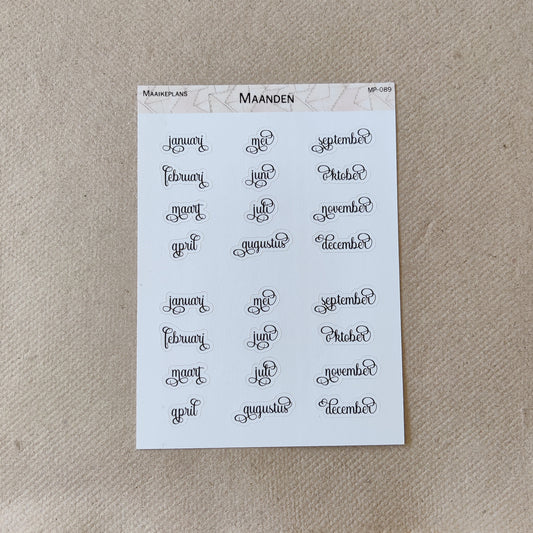 MAAIKEPLANS
MAANDEN
MP-089
januari mei september
februari juni oktober
maart juli november
april augustus december
januari mei september
februari juni oktober
maart juli november
april augustus december